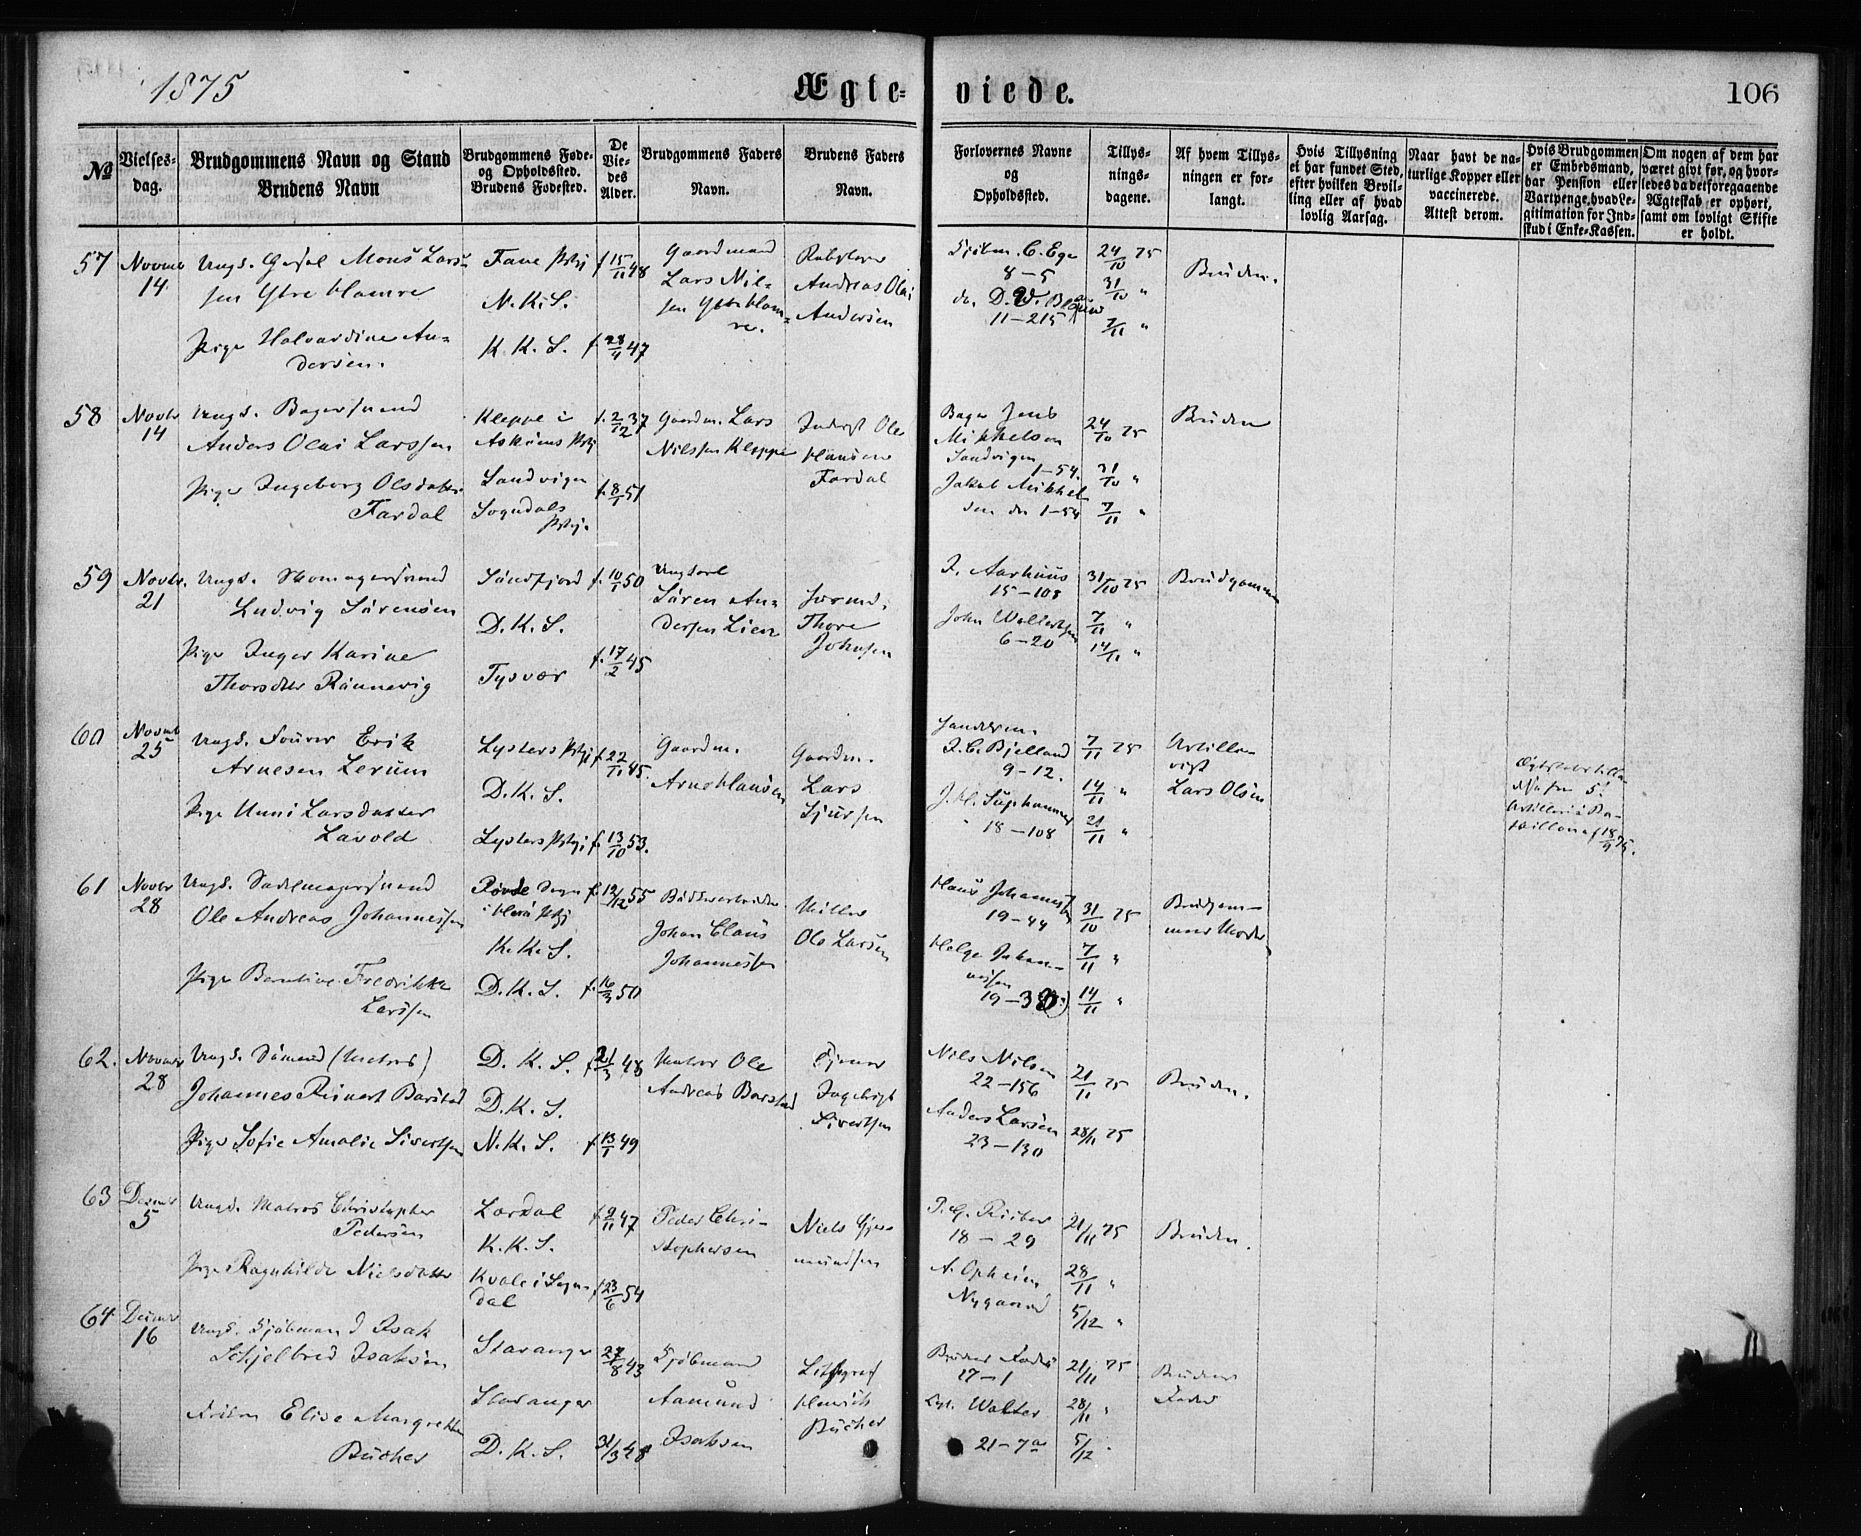 1875
Ægte=
viede.
106
№
Vielses-
dag.
Brudgommens Navn og Stand
Brudens Navn
Brudgommens Føde-
og Opholdssted.
Brudens Fødested.
De
Vie-
des
Alder.
Brudgommens Faders
Navn.
Brudens Faders
Navn.
Forlovernes Navne
og
Opholdssted.
Tillys-
nings-
dagene.
Af hvem Tillys-
ningen er for-
langt.
Hvis Tillysning
ei har fundet Sted,
efter hvilken Bevil-
ling eller af hvad
lovlig Aarsag.
Naar havt de na-
turlige Kopper eller
vaccinerede.
Attest derom.
Hvis Brudgommen
er Embedsmand,
har Pension eller
Vartpenge, hvad Le-
gitimation for Ind-
skud i Enke-Kassen.
Om nogen af dem har
været givt før, og hvor-
ledes da det foregaaende
Ægteskab er ophørt,
samt om lovligt Skifte
er holdt.
57
Novmb
14
Ungk. Mons Lars-
sen Ytre Hamre
Pige Halvardine An=
dersen.
Fane
N. K. S.
K. K. S.
f 15/11 48
f. 28/4 47
Gaardmand
Lars Nil=
sen Ytre Ham=
re.
Andreas Olai
Andersen
C. Ege
8-5
do. D.
11-215
24/10 75
31/10 "
7/11 "
Bruden.
58
Novbr
14
Ungk. Bagersvend
Anders Olai Larssen
Pige Ingeborg Olsdatter
Fardal
Kleppe i
Askøens Pstgj
Sandvigen
Sogndals
Pstgj.
f. 2/12 37
f. 8/1 51
Gaardm. Lars
Nilssen Kleppe
Inderst Ole
Hansen
Fardal
Bager Jens
Mikkelsen
Sandvigen
1-54.
Jakob Mikkel
sen do 1-54
24/10 75
31/10 "
7/11 "
Bruden
59
Novbr.
21
Ungk. Skomagersvend
Ludvig Sørensen
Pige Inger Karine
Thorsdtter Rønnevig
Søndfjord
D. K. S.
Tysvær
f. 10/1 50
f. 17/2 45
Ungkarl
Søren An=
dersen Lien
Thore
Johnsen
J. Aarhuus
15-108
John Wallertsen
6-20
31/10 75
7/11 "
14/11 "
Brudgommen
60
Novmb
25
Ungk. Fourer Erik
Arnesen Lerum
Pige Unni Larsdatter
Lavold
Lysters Pstgj
D. K. S.
Lysters Pstgj
f 22/11 45.
f. 13/10 53.
Gaardm.
Arne Hansen
Gaardm.
Lars
Sjursen
J. C. Bjelland
9-12.
18-108
7/11 75
14/11 "
21/11 "
Artille-
rist
Lars Olsen
61
Novbr
28
Ungk. Sadelmagersvend
Ole Andreas Johannessen
Pige Berntine Fredrikke
Larssen
Røvde Sogn
i Herø Pstgj
K. K. S.
D. K. S.
f. 19/12 55
f. 16/3 50
Johan Claus
Johannessen
Møller
Ole Larsen
Hans Johannessen
19-44
Helge Johan-
nessen
31/10 75
7/11 "
14/11 "
Brudgom-
mens Moder
62.
Novembr
28
Ungk. Sømand (Matros)
Johannes Reinert Barstad
Pige Sofie Amalie Sivertsen
D. K. S.
D. K. S.
N. K. S.
f 21/3 48
f 13/1 49
Matros Ole
Andreas Barstad
Ingebrigt
Sivertsen
Nils Nilsen
22-156
Anders Larsen
23-130
21/11 75
28/11 75
Bruden.
63
Decmbr
5
Ungk. Matros Christopher
Pedersen
Pige Ragnhilde Nielsdatter
Lærdal
K. K. S.
Kvale i Sogn-
dal
f 2/11 47
f 23/6 54
Peder Chri-
stophersen
Niels Gjer-
mundsen
18-29
A. Opheim
Nygaard
21/11 75
28/11 "
5/12 "
Bruden.
64
Decmbr
16
Ungk. Sjøbmand J Isak
Schjelbred Isaksen
Frøken Elise Margrethe
Bücher
Stavanger
Stavanger
D. K. S.
27/8 43
31/3 48
Aamund
Isaksen
Lithograf
Henrich
Bücher
Brudens Fader
17-1
Walter
21-7a
21/11 75
28/11 "
5/12 "
Brudens
Fader